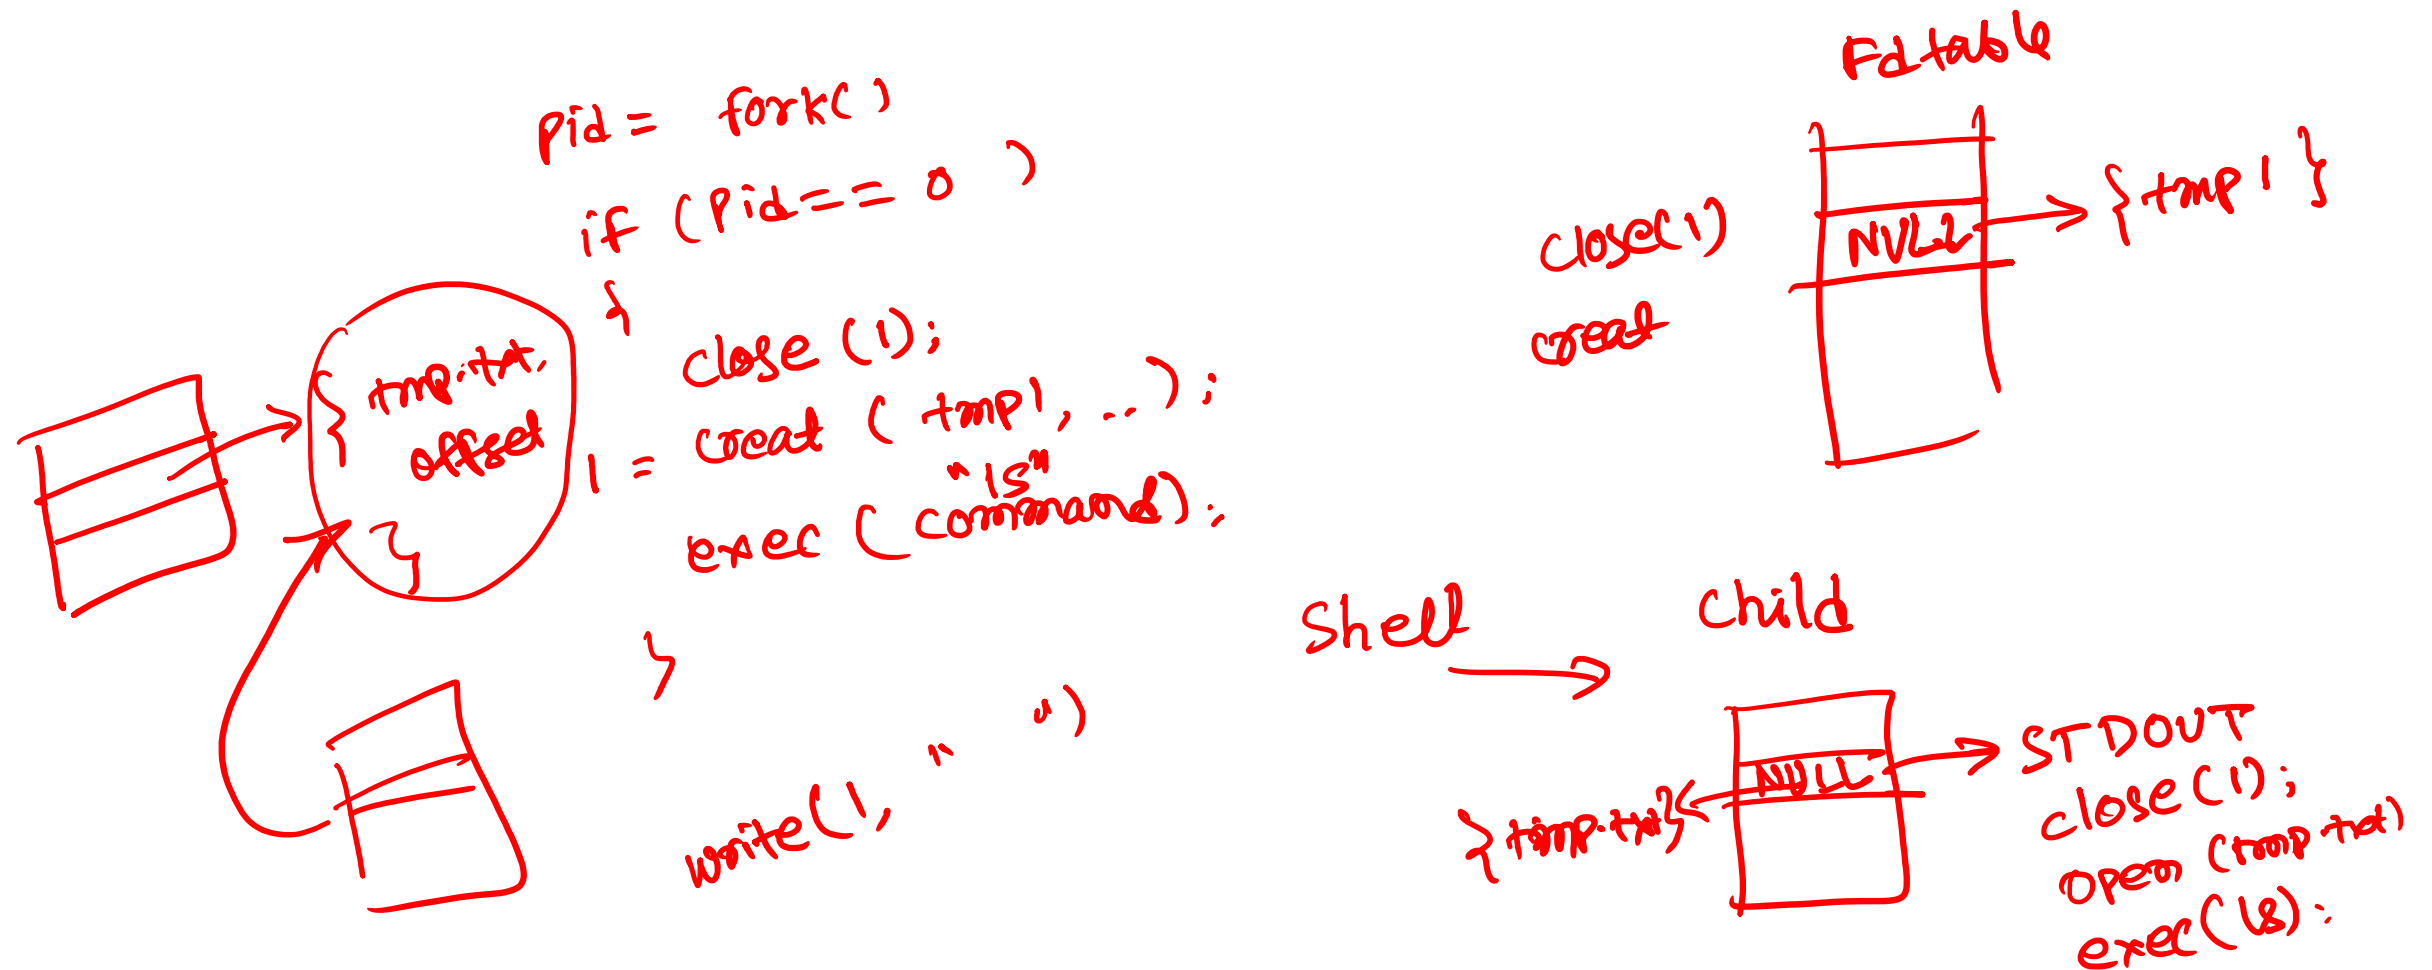 pid = fork()
if (pid == 0 )
{
close (1);
1 = creat ( tmp1, ... );
"ls"
exec ( command);
}
write(1, " ")
{ tmp.txt,
offset
}
Fd table
close(1)
creat
NULL
{ tmp1 }
Shell
Child
NULL
{tmp.txt}
STDOUT
close (1);
open (tmp.txt)
exec(ls);